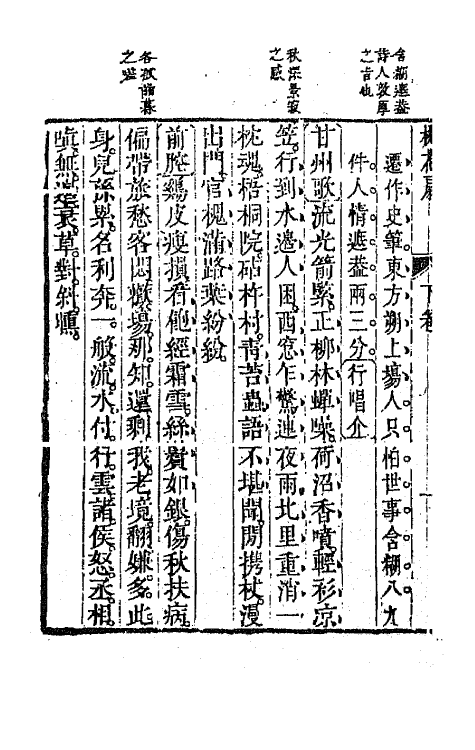 含糊遮蓋
詩人敦厚
之旨也
秋深景寂
之感
暮
之嗟
桃花扇 下卷
遷作史筆東方朔上場人只怕世事含糊八九
件人情遮蓋兩三分行唱介
甘州歌流光箭緊。正柳林蟬噪。荷沼香噴。輕衫涼
笠。行到水邊人困。西窓乍驚連夜雨。北里重消一
枕魂。梧桐院。砧杵村。靑苔蟲語不堪聞。閒携杖。漫
出門。官槐滿路葉紛紛。
前腔雞皮瘦損。看飽經霜雪。絲鬢如銀。傷秋扶病。
偏帶旅愁客悶。歡場那知還剩我。老境翻嫌多此
身。兒孫累。名利奔。一般流水付行雲。諸侯怒。丞相
嗔。無邊衰草對斜曛。